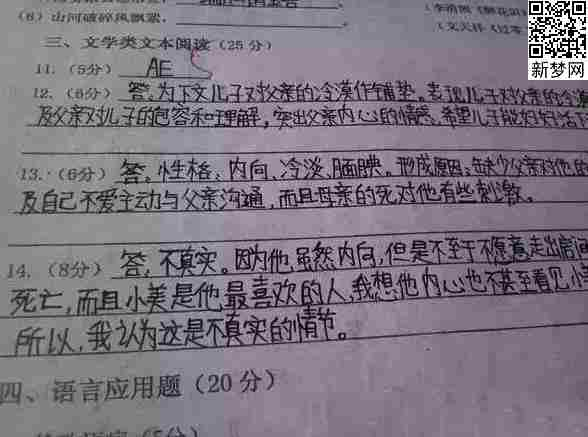 (6) 山河破碎风飘絮,
三、文学类文本阅读(25分)
新梦网
11. (5分) AE
12. (6分) 答,为下文儿子对父亲的冷漠作铺垫。表现儿子对父亲的冷漠
及父亲对儿子的包容和理解,突出父亲内心的情感、希望儿子能好好活下
13. (6分) 答,性格:内向、冷淡、腼腆。形成原因:缺少父亲对他
及自己不爱主动与父亲沟通,而且母亲的死对他有些刺激。
14. (8分) 答,不真实。因为他虽然内向,但是不至于不愿意走出房间
死亡,而且小美是他最喜欢的人,我想他内心也不甚至看见小
所以,我认为这是不真实的情节。
四、语言应用题(20分)